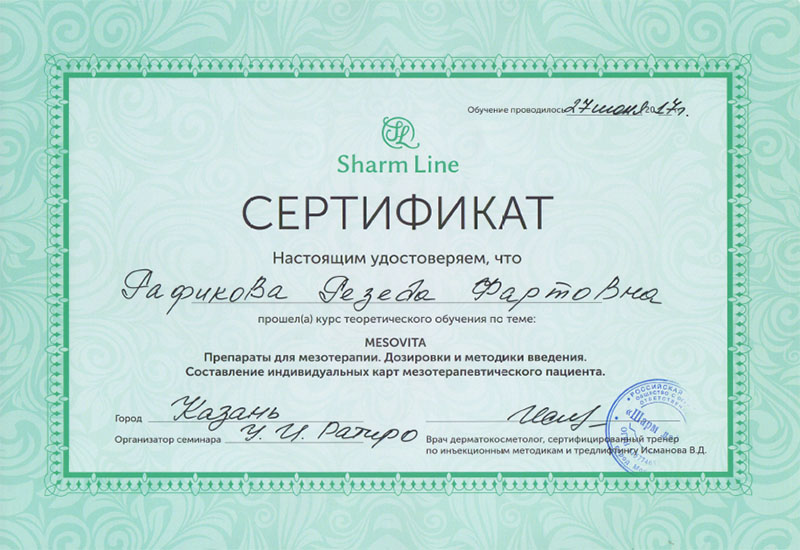 Обучение проводилось 27 июня 2017г.
SL
Sharm Line
СЕРТИФИКАТ
Настоящим удостоверяем, что
Рафикова Резеда Фартовна
прошел(а) курс теоретического обучения по теме:
MESOVITA
Препараты для мезотерапии. Дозировки и методики введения.
Составление индивидуальных карт мезотерапевтического пациента.
Город Казань
Организатор семинара У. Ц. Ратиро
Врач дерматокосметолог, сертифицированный тренер
по инъекционным методикам и тредлифтингу Исманова В.Д.
РОССИЙСКАЯ
ОБЩЕСТВО С
ОТВЕТСТВЕН
«Шарм